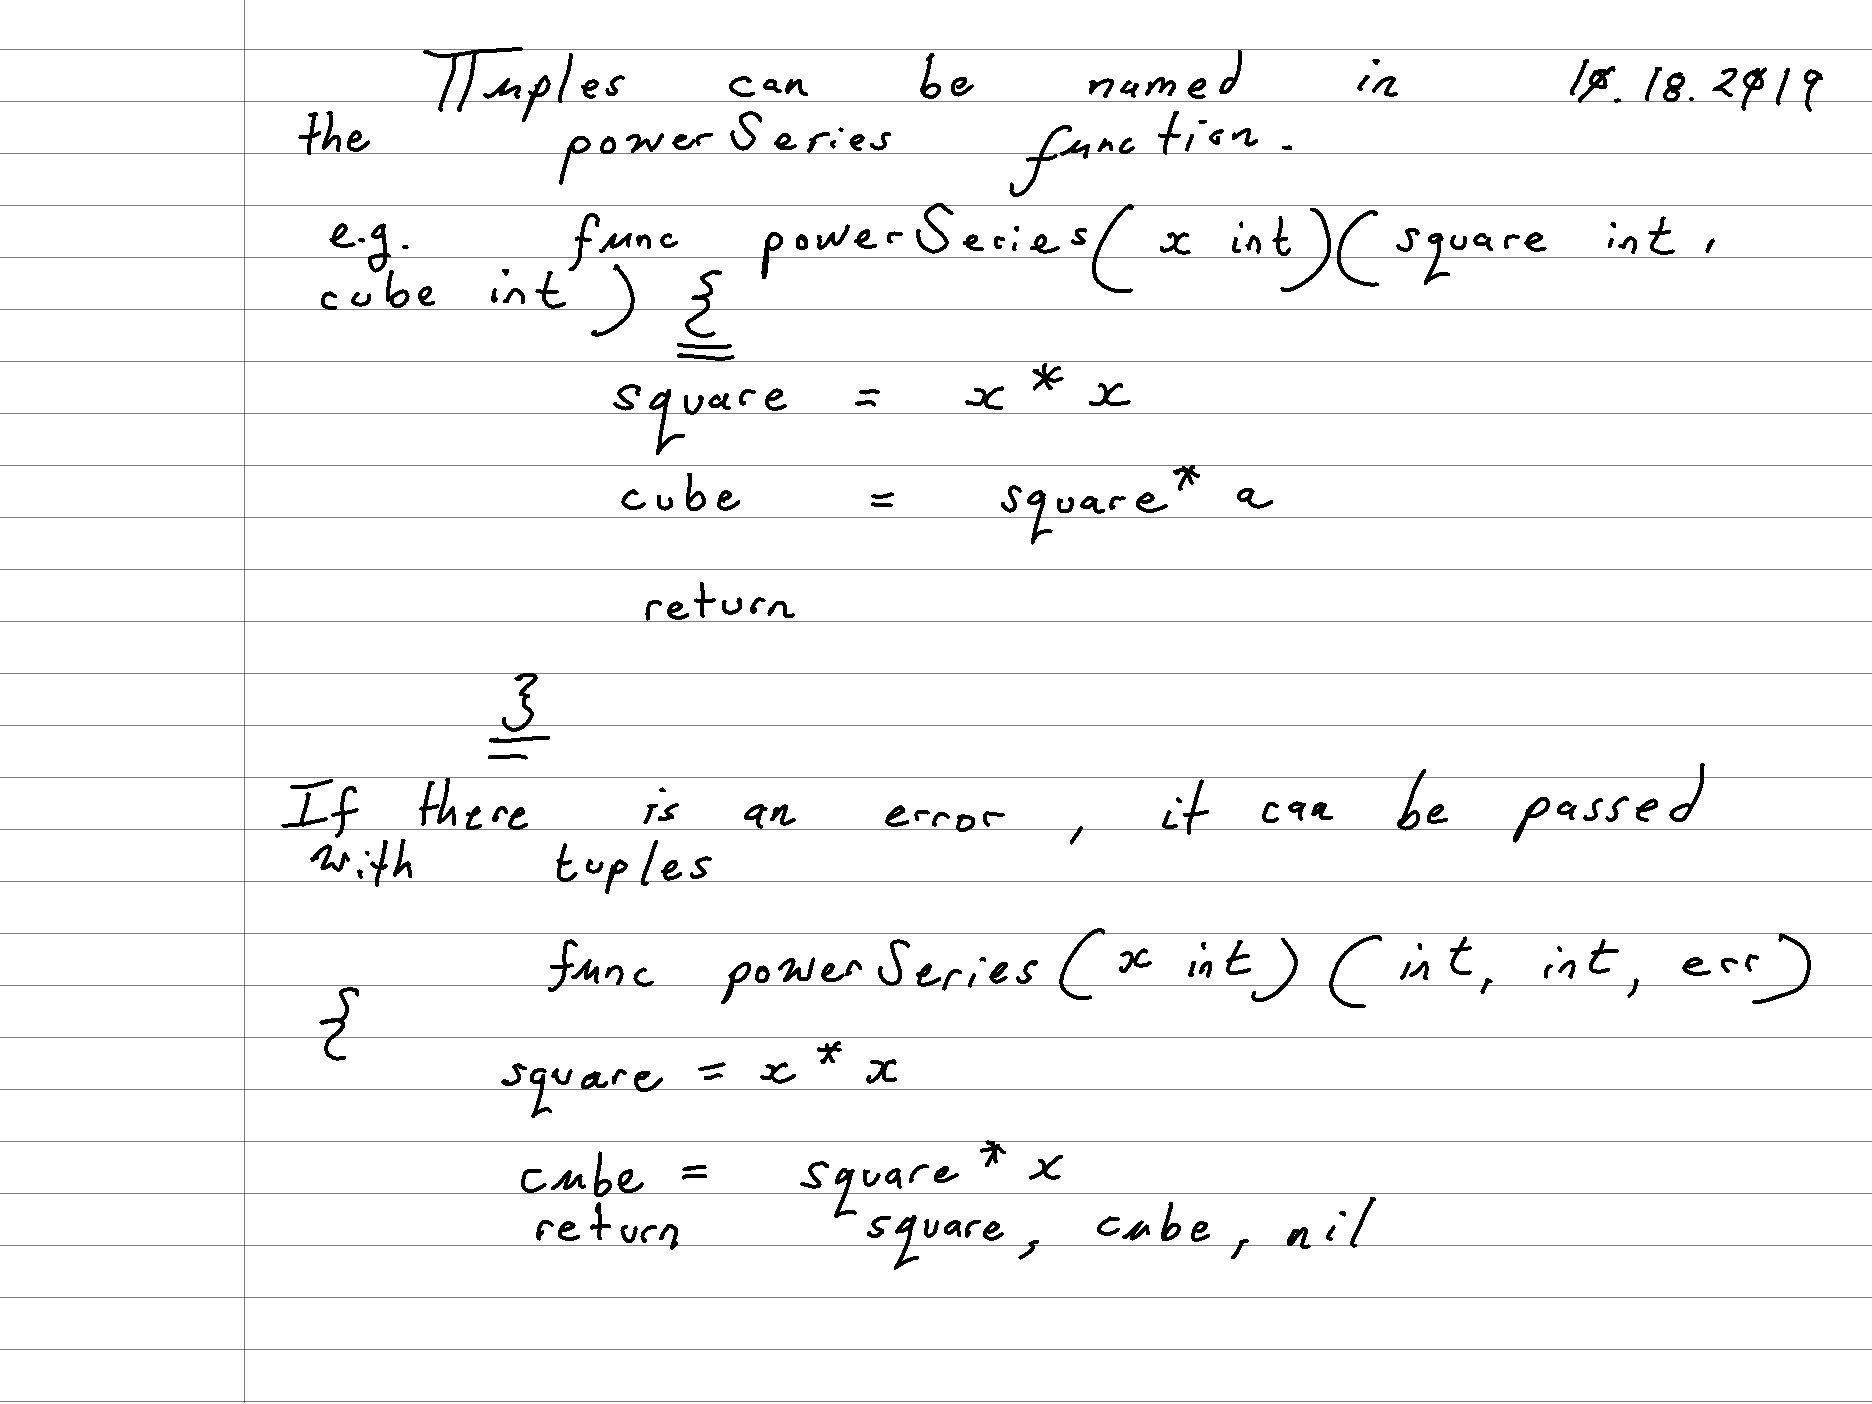 Tuples can be named in 10.18.2019
the powerSeries function.
e.g. func powerSeries(x int)(square int,
cube int) {
square = x * x
cube = square * a
return
}
If there is an error, it can be passed
with tuples
func powerSeries(x int) (int, int, err)
{
square = x * x
cube = square * x
return square, cube, nil